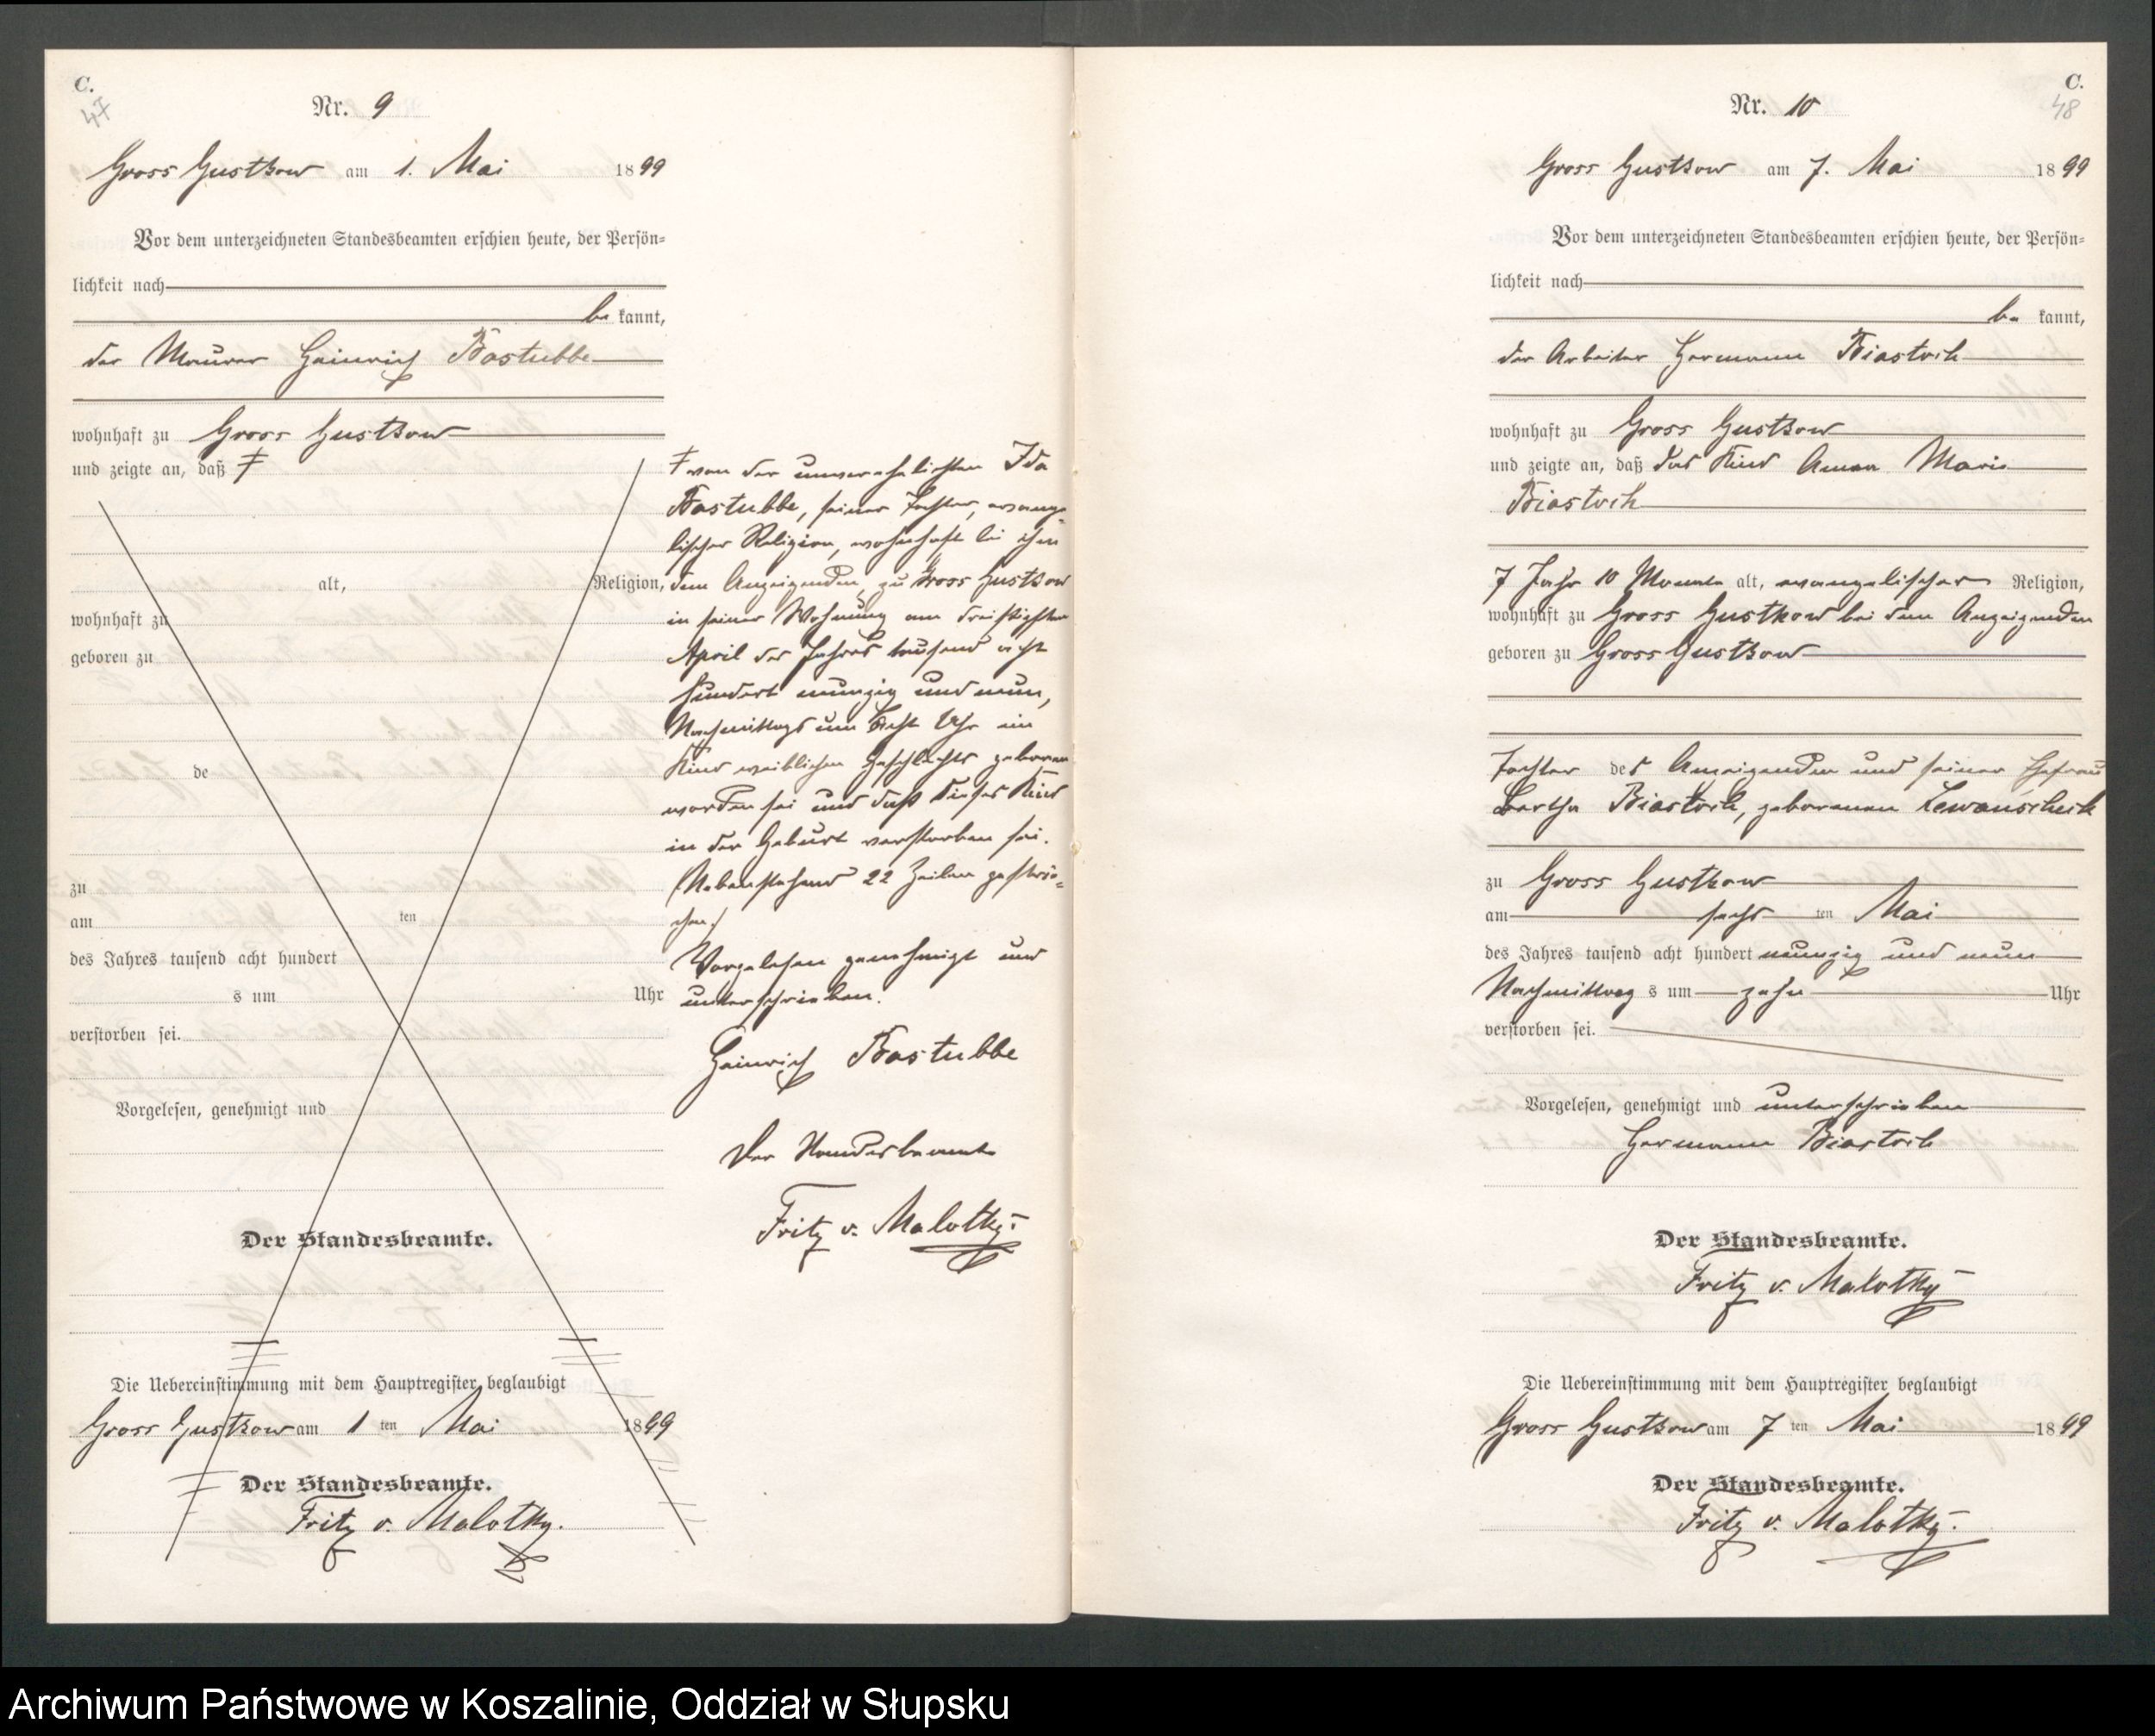 C.
47
Nr. 9
Gross Gustkow am 1. Mai 1899
Vor dem unterzeichneten Standesbeamten erschien heute, der Persön=
lichkeit nach
be kannt,
der Maurer Heinrich Bastubbe
wohnhaft zu Gross Gustkow
und zeigte an, daß
alt, Religion,
wohnhaft zu
geboren zu
de
zu
am ten
des Jahres tausend acht hundert
s um Uhr
verstorben sei.
Vorgelesen, genehmigt und
Der Standesbeamte.
von der unverehelichten Ida
Bastubbe, seiner Tochter, evange=
lischer Religion, wohnhaft bei ihm
dem Anzeigenden, zu Gross Gustkow
in seiner Wohnung am dreißigsten
April des Jahres tausend acht
hundert neunzig und neun,
Nachmittags um acht Uhr ein
Kind weiblichen Geschlechts geboren
worden sei und daß dieses Kind
in der Geburt verstorben sei.
(Nebenstehend 22 Zeilen gestri=
chen.)
Vorgelesen genehmigt und
unterschrieben.
Heinrich Bastubbe
Der Standesbeamte
Fritz v. Malotky.
Die Uebereinstimmung mit dem Hauptregister beglaubigt
Gross Gustkow am 1 ten Mai 1899
Der Standesbeamte.
Fritz v. Malotky.
C.
48
Nr. 10
Gross Gustkow am 7. Mai 1899
Vor dem unterzeichneten Standesbeamten erschien heute, der Persön=
lichkeit nach
be kannt,
der Arbeiter Hermann Biastoch
wohnhaft zu Gross Gustkow
und zeigte an, daß das Kind Anna Marie
Biastoch
7 Jahr 10 Monate alt, evangelischer Religion,
wohnhaft zu Gross Gustkow bei dem Anzeigenden
geboren zu Gross Gustkow
Tochter des Anzeigenden und seiner Ehefrau
Bertha Biastoch, geborenen Lewanscheck
zu Gross Gustkow
am sechs ten Mai
des Jahres tausend acht hundert neunzig und neun
Nachmittag s um zehn Uhr
verstorben sei.
Vorgelesen, genehmigt und unterschrieben
Hermann Biastoch
Der Standesbeamte.
Fritz v. Malotky
Die Uebereinstimmung mit dem Hauptregister beglaubigt
Gross Gustkow am 7 ten Mai 1899
Der Standesbeamte.
Fritz v. Malotky.
Archiwum Państwowe w Koszalinie, Oddział w Słupsku